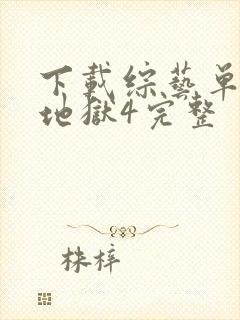 下載综藝单
地獄4完整
株梓